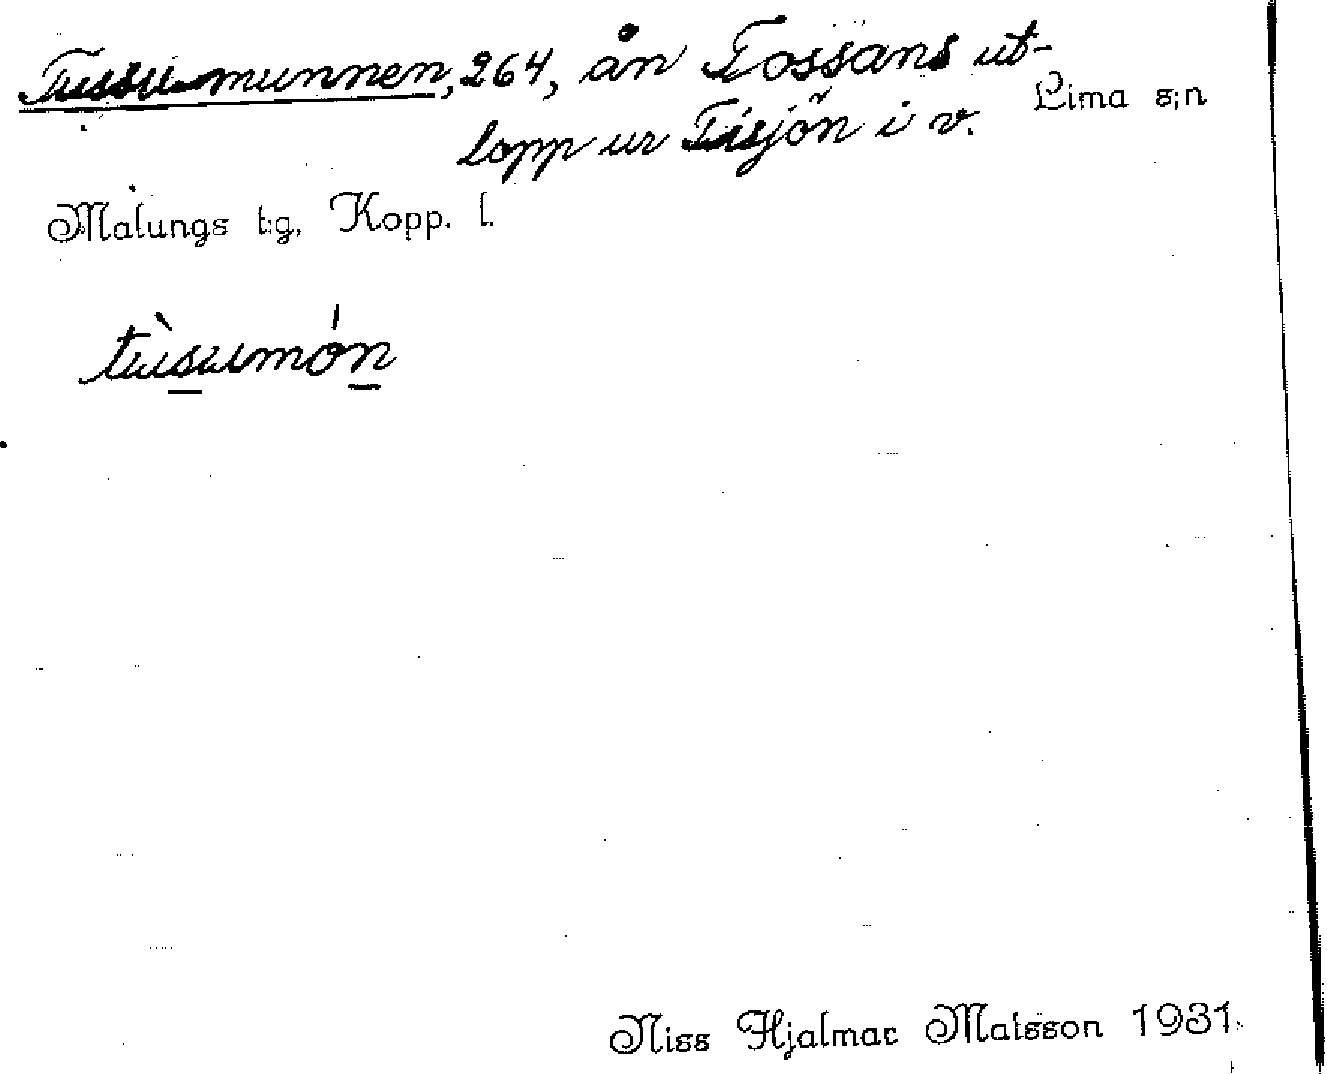 Tussumunnen, 264, ån Tossåns ut-
lopp ur Tisjön i v.
Lima s:n
Malungs t:g, Kopp. l.
tùsumón
Niss Hjalmar Matsson 1931.